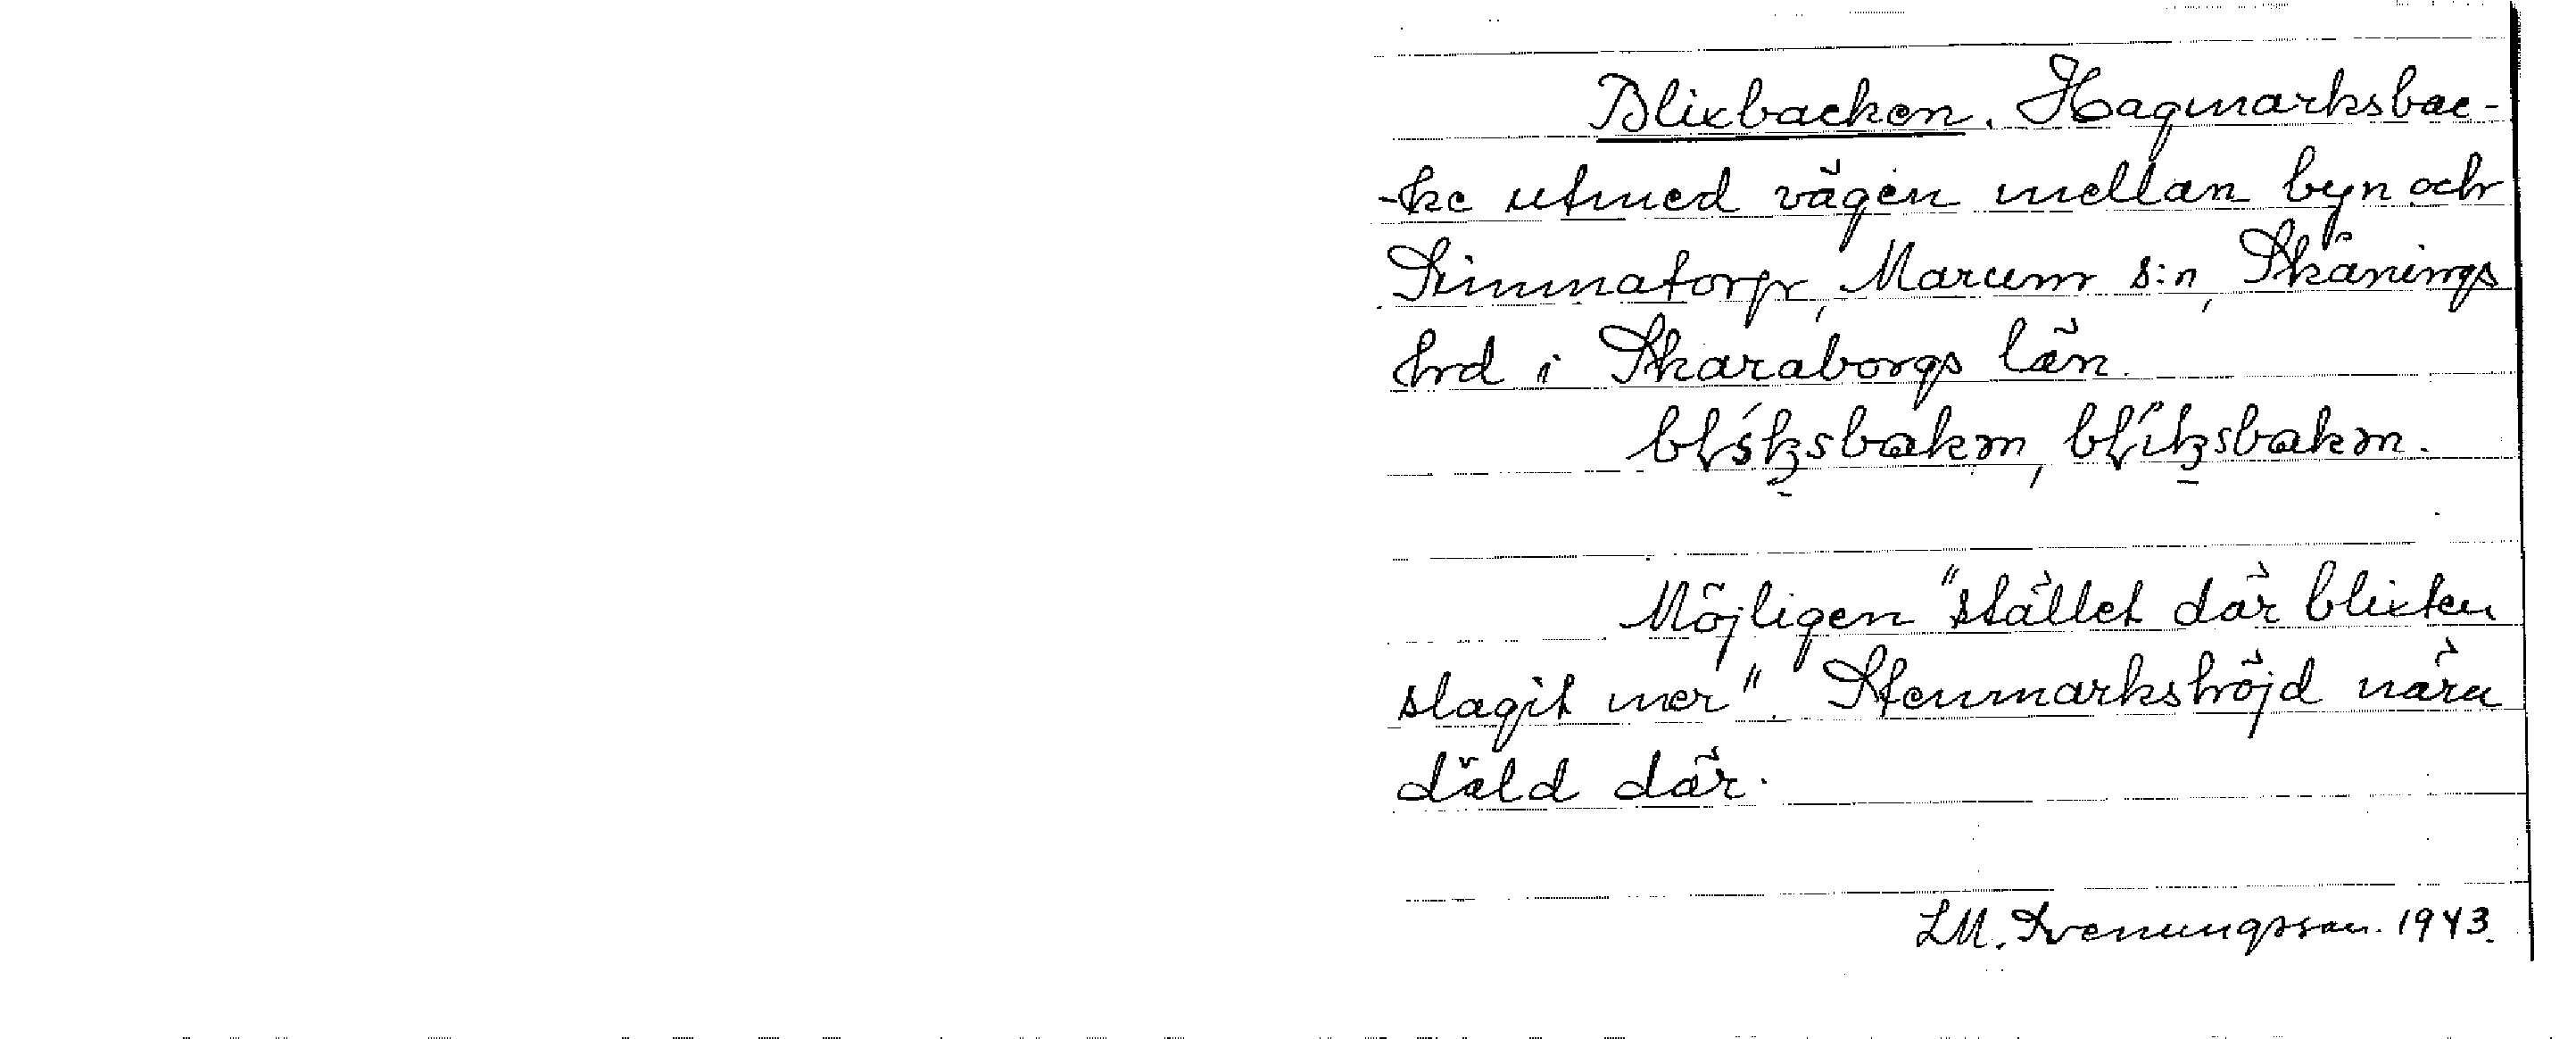 Blixbacken. Hagmarksbac-
-ke utmed vägen mellan byn och
Simmatorp, Marum s:n, Skånings
hrd i Skaraborgs län.
Möjligen "stället där blixten
slagit ner". Stenmarkshöjd nära
däld där.
LM. Svenungsson. 1943.